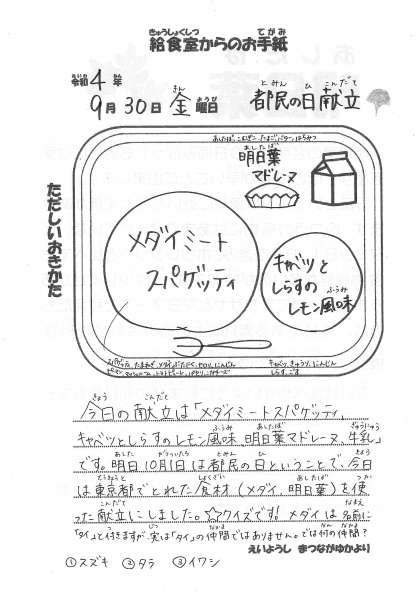 給食室からのお手紙
令和4年
9月30日 金曜日 都民の日献立
ただしいおきかた
明日葉
マドレーヌ
メダイミート
スパゲッティ
キャベツと
しらすの
レモン風味
今日の献立は「メダイミートスパゲッティ、
キャベツとしらすのレモン風味、明日葉マドレーヌ、牛乳」
です。明日10月1日は都民の日ということで、今日
は東京都でとれた食材（メダイ、明日葉）を使
った献立にしました。☆クイズです！メダイは名前に
「タイ」と付きますが、実は「タイ」の仲間ではありません。では何の仲間？
えいようし まつながゆかより
①スズキ ②タラ ③イワシ